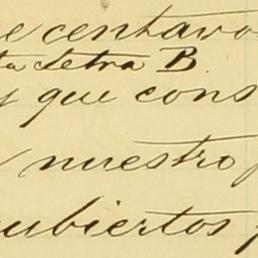 e centavo
ta Letra B.
y que cons
nuestro
cubiertos